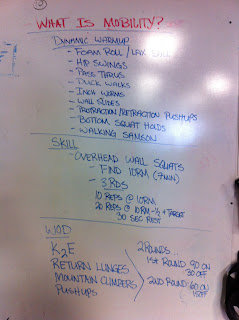 WHAT IS MOBILITY?
DYNAMIC WARMUP
- FOAM ROLL / LAX BALL
- HIP SWINGS
- PASS THRUS
- DUCK WALKS
- INCH WORMS
- WALL SLIDES
- PROTRACTION/RETRACTION PUSHUPS
- BOTTOM SQUAT HOLDS
- WALKING SAMSON
SKILL
- OVERHEAD WALL SQUATS
- FIND 10RM (7MIN)
3 RDS
10 REPS @ 10RM
20 REPS @ 10RM -⅓ + TARGET
30 SEC REST
WOD
K2E
RETURN LUNGES
MOUNTAIN CLIMBERS
PUSHUPS
2 ROUNDS...
1ST ROUND: 90 ON
30 OFF
2ND ROUND: 60 ON
15 OFF